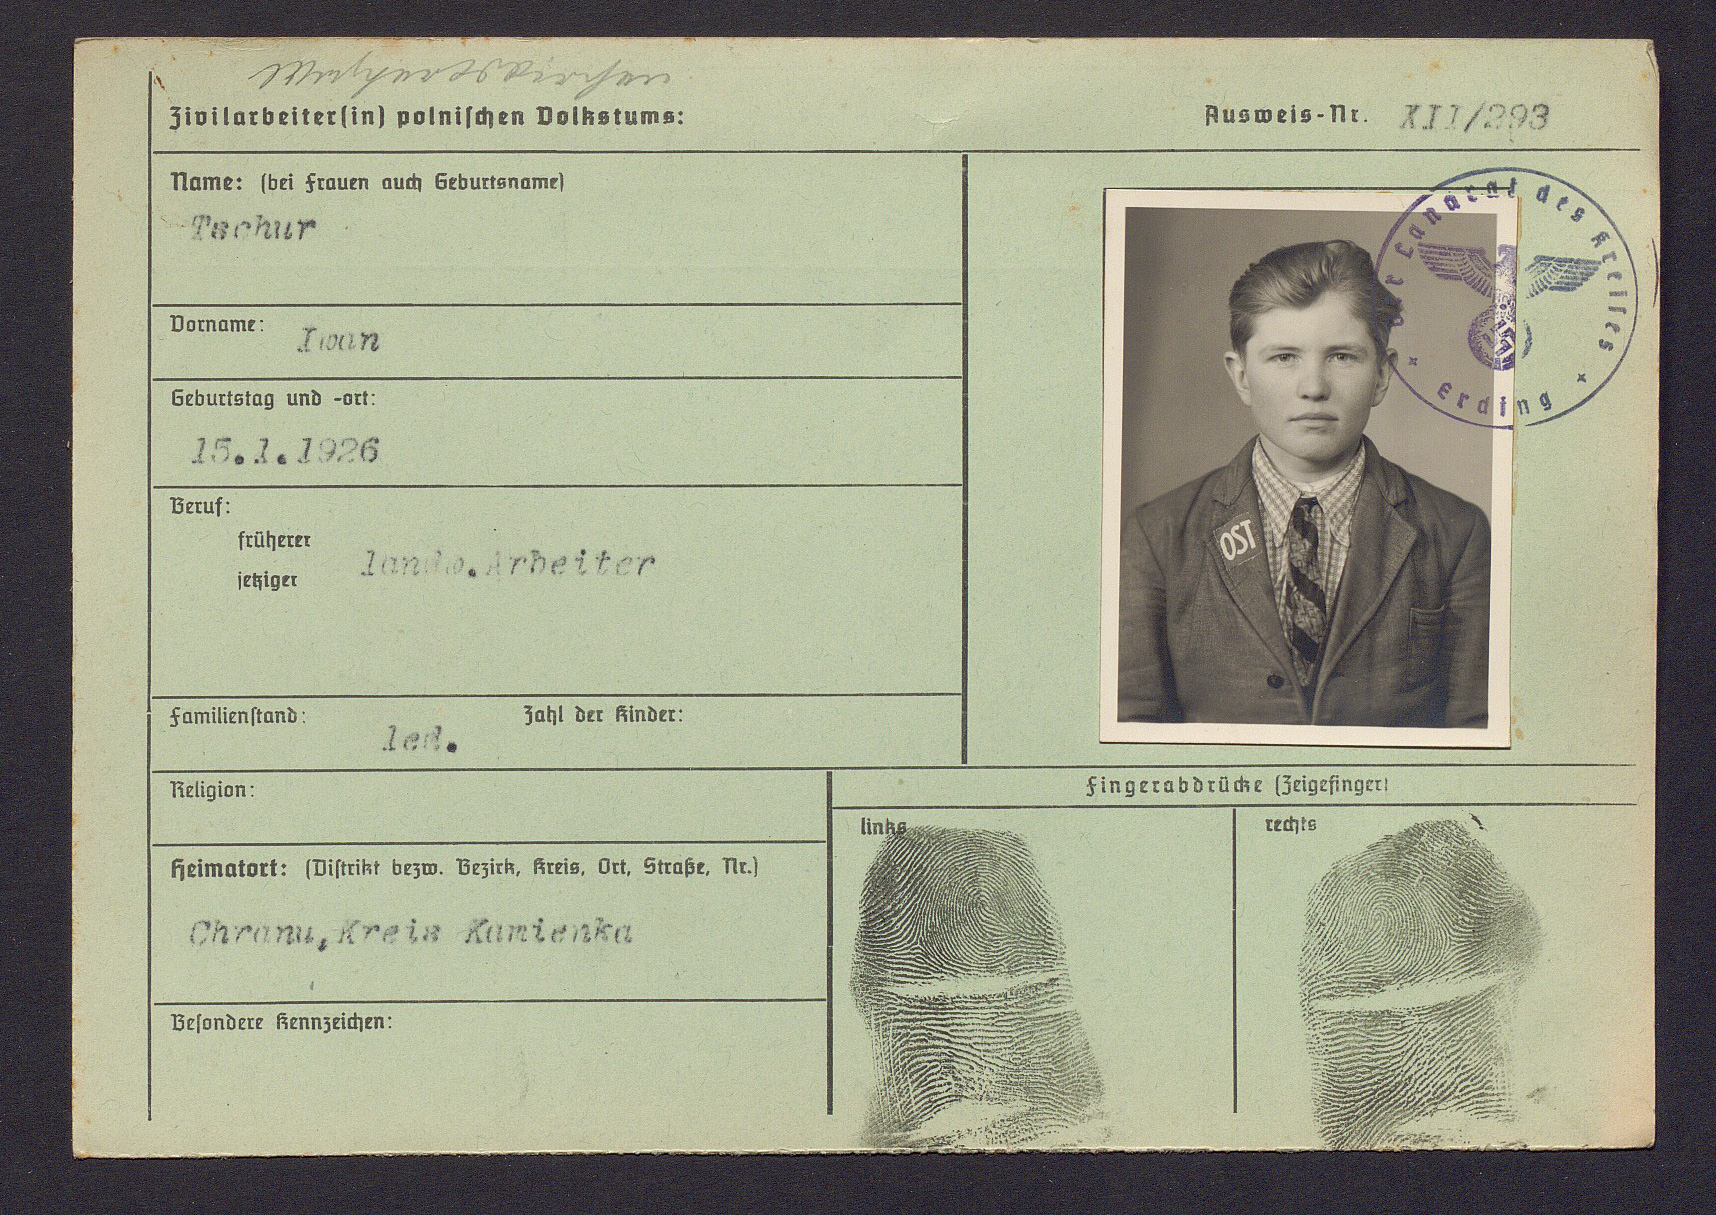 Zivilarbeiter(in) polnischen Volkstums:
Ausweis-Nr. XII/293
Name: (bei Frauen auch Geburtsname)
Tschur
Vorname: Iwan
Geburtstag und -ort:
15.1.1926
Beruf:
früherer
jetziger
landw.Arbeiter
Familienstand: led.
Zahl der Kinder:
Religion:
Heimatort: (Distrikt bezw. Bezirk, Kreis, Ort, Straße, Nr.)
Chranu,Kreis Kamienka
Besondere Kennzeichen:
Der Landrat des Kreises
Erding
OST
Fingerabdrücke (Zeigefinger)
links
rechts